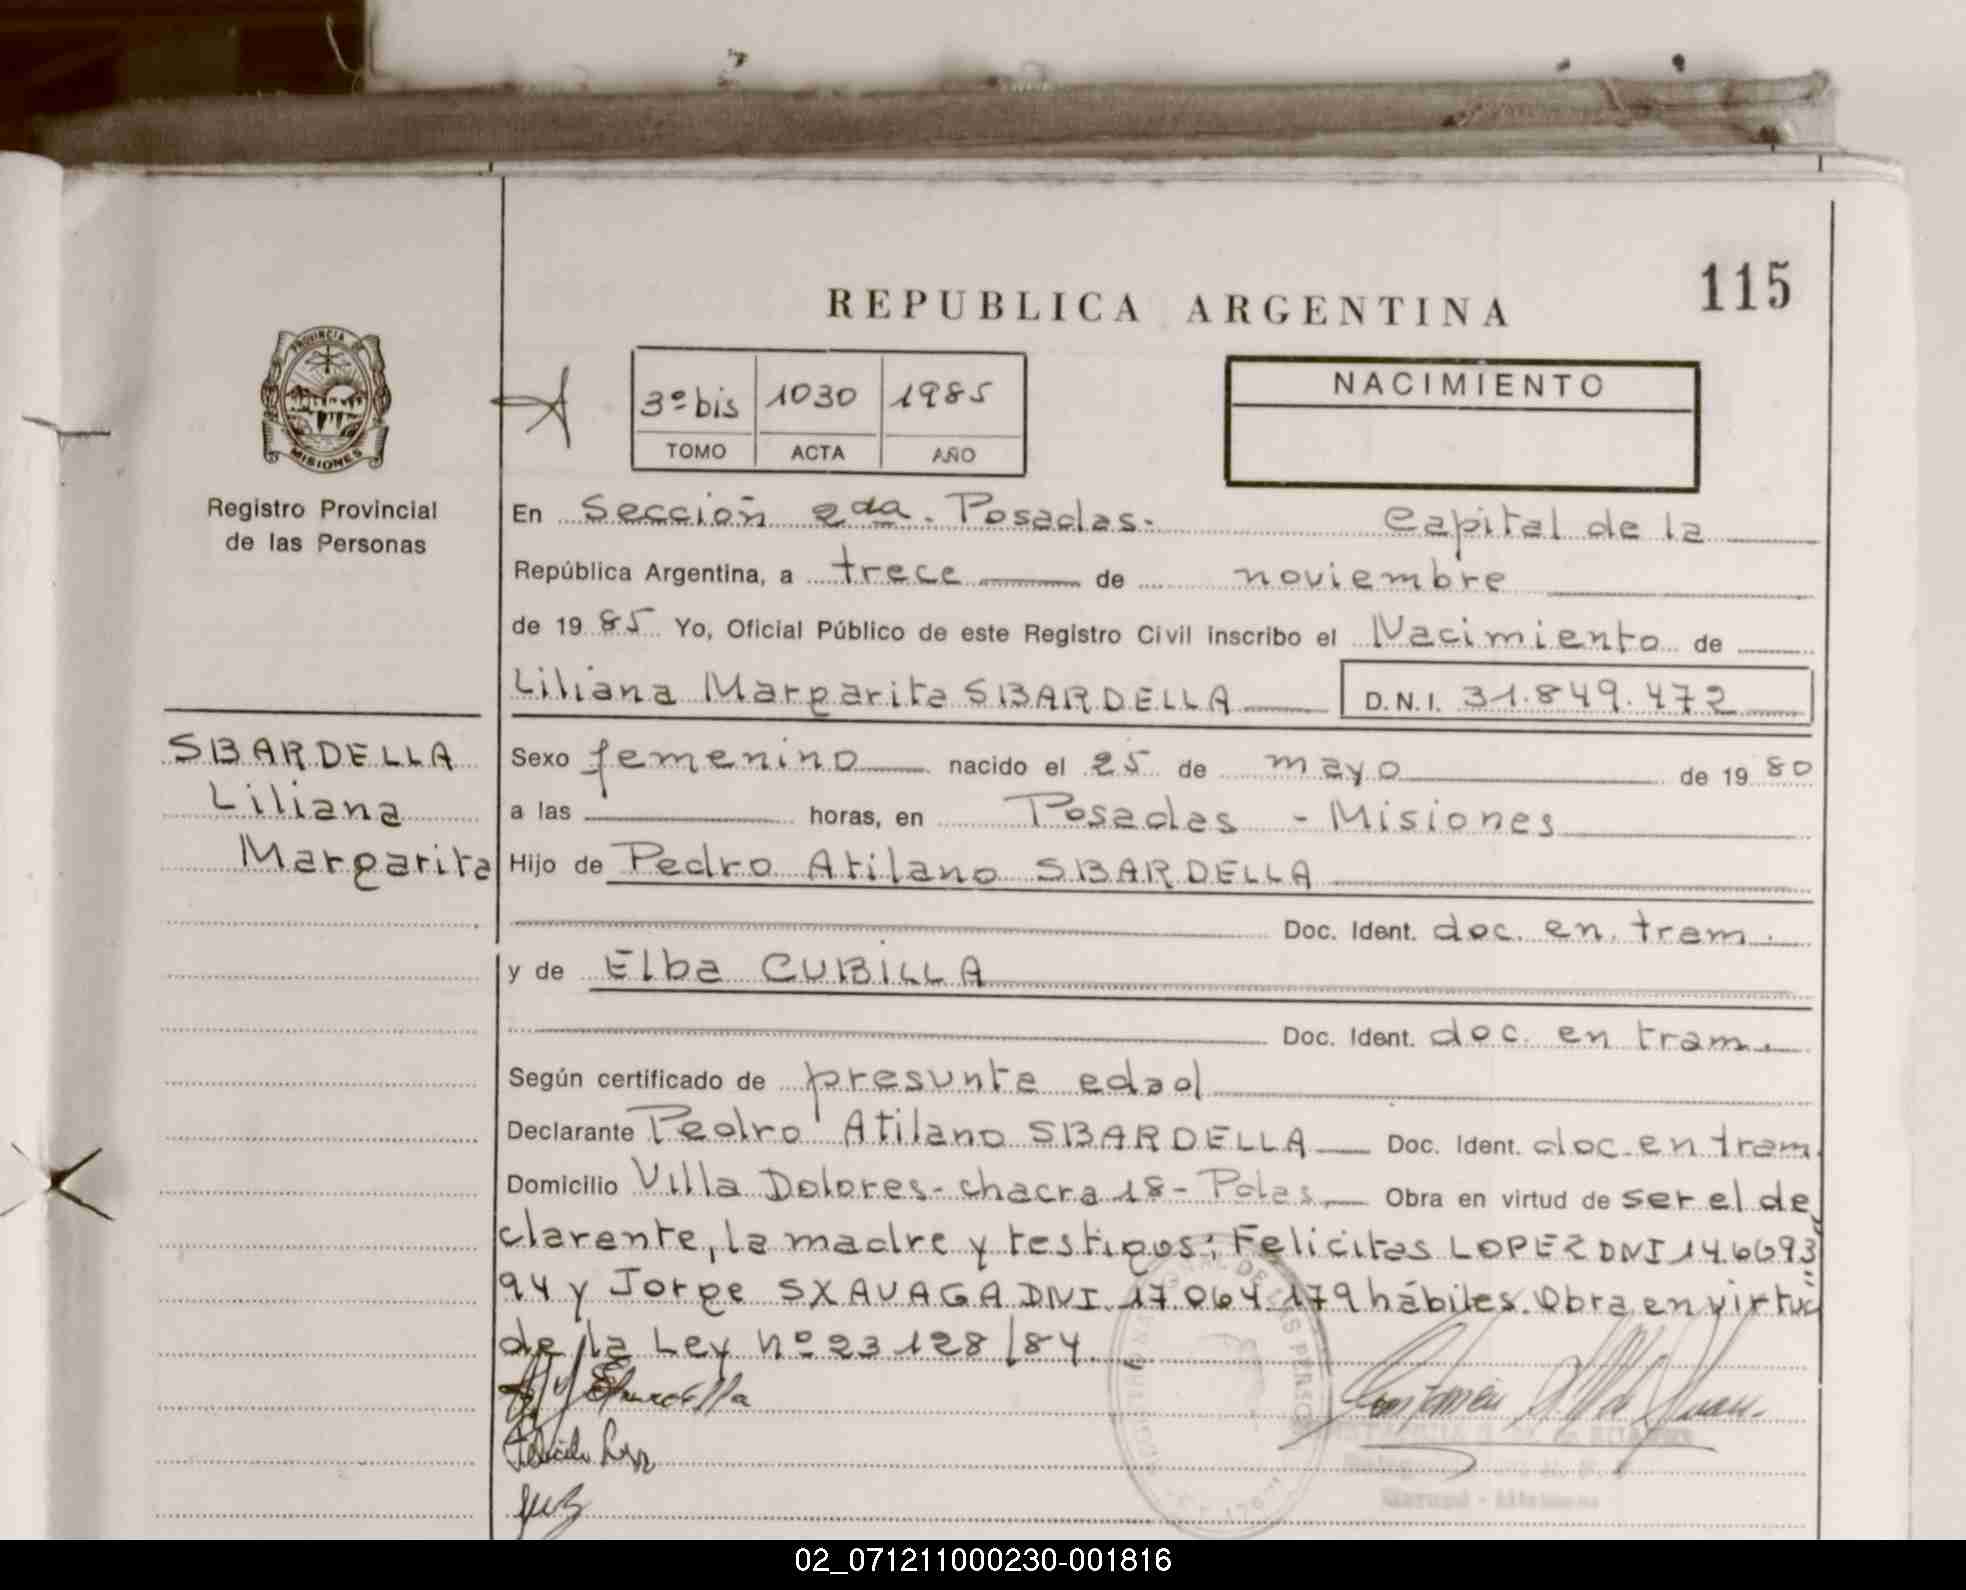 115
REPUBLICA ARGENTINA
PROVINCIA DE
MISIONES
3º bis 1030 1985
TOMO ACTA AÑO
NACIMIENTO
Registro Provincial
de las Personas
En Sección 2da. Posadas. Capital de la
República Argentina, a trece de noviembre
de 1985 Yo, Oficial Público de este Registro Civil inscribo el Nacimiento de
Liliana Margarita SBARDELLA D.N.I. 31.849.472
SBARDELLA
Liliana
Margarita
Sexo femenino nacido el 25 de mayo de 1980
a las horas, en Posadas - Misiones
Hijo de Pedro Atilano SBARDELLA
Doc. Ident. doc. en tram.
y de Elba CUBILLA
Doc. Ident. doc. en tram.
Según certificado de presunta edad
Declarante Pedro Atilano SBARDELLA Doc. Ident. doc. en tram.
Domicilio Villa Dolores - chacra 18 - Pdas. Obra en virtud de ser el de
clarente, la madre y testigos: Felicitas LOPEZ DNI 14.6693
94 y Jorge SXAVAGA DNI. 17.064.179 hábiles. Obra en virtud
de la Ley nº 23128/84.
02_071211000230-001816